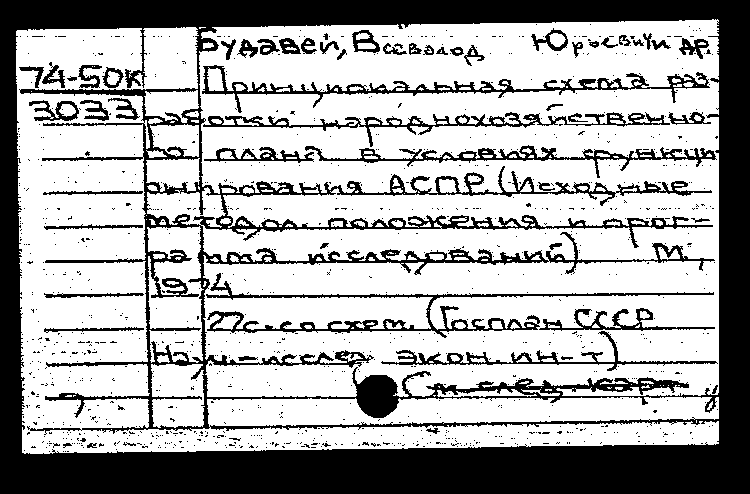 Будавей, Всеволод Юрьевич и др.
74-50к
3033
Принципиальная схема раз-
работки народнохозяйственно-
го плана в условиях функци
онирования АСПР. (Исходные
методол. положения и прог-
рамма исследований). М.,
1974
77с. со схем. (Госплан СССР
Науч.-исслед. экон. ин-т)
(См след. карт